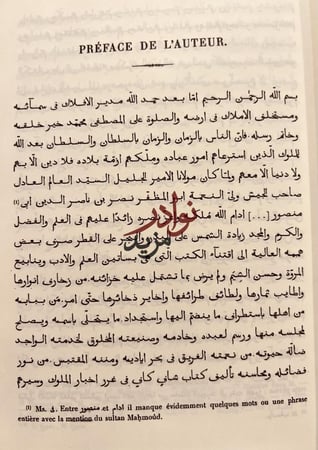 PRÉFACE DE L'AUTEUR.
بسم الله الرحمن الرحيم امّا بعد حمد الله مدير الافلاك فى سمآئه
ومستخلف الاملاك فى ارضه والصلوة على المصطفى محمّد خير خلقه
وخاتم رسله فانّ الناس بالزمان والزمان بالسلطان والسلطان بعد الله
للملوك الّذين استرعاهم امور عباده وملّكهم ازمّة بلاده فلا دين الّا بهم
ولا دنيا الّا معهم ولمّا كان مولانا الامير الجليل السيّد الملك العادل
صاحب الجيش ولىّ النعمة ابو المظفّر نصر بن ناصر الدين ابى
منصور [...] ادام الله نوادر زائدًا عليهم فى العلم والفضل
والكرم والمجد زيادة الشمس على مزيد على القطر صرف بعض
هممه العالية الى اقتناء الكتب الّتى هى بساتين العلم والادب وينابيع
المروّة وحسن الشيم ولم يرض بما تشتمل عليه خزائنه من زخارف انوارها
واطايب ثمارها ولطائف طرائفها واخاير ذخائرها حتّى امر من ببابه
من اهلها باستطراف ما ينضمّ اليها واستجداد ما يتحلّى باسمه ويصلح
لمجلسه منها ورسم لعبده وخادمه وصنيعته المخلوق لخدمته الواجد
ضالّة حيرته من نعمته الغريق فى بحر اياديه ومننه المقتبس من نور
فضائله ومحاسنه تأليف كتاب شاف كاف فى غرر اخبار الملوك وسيرهم
(1) Ms. A. Entre منصور et ادام il manque évidemment quelques mots ou une phrase
entière avec la mention du sultan Maḥmoûd.